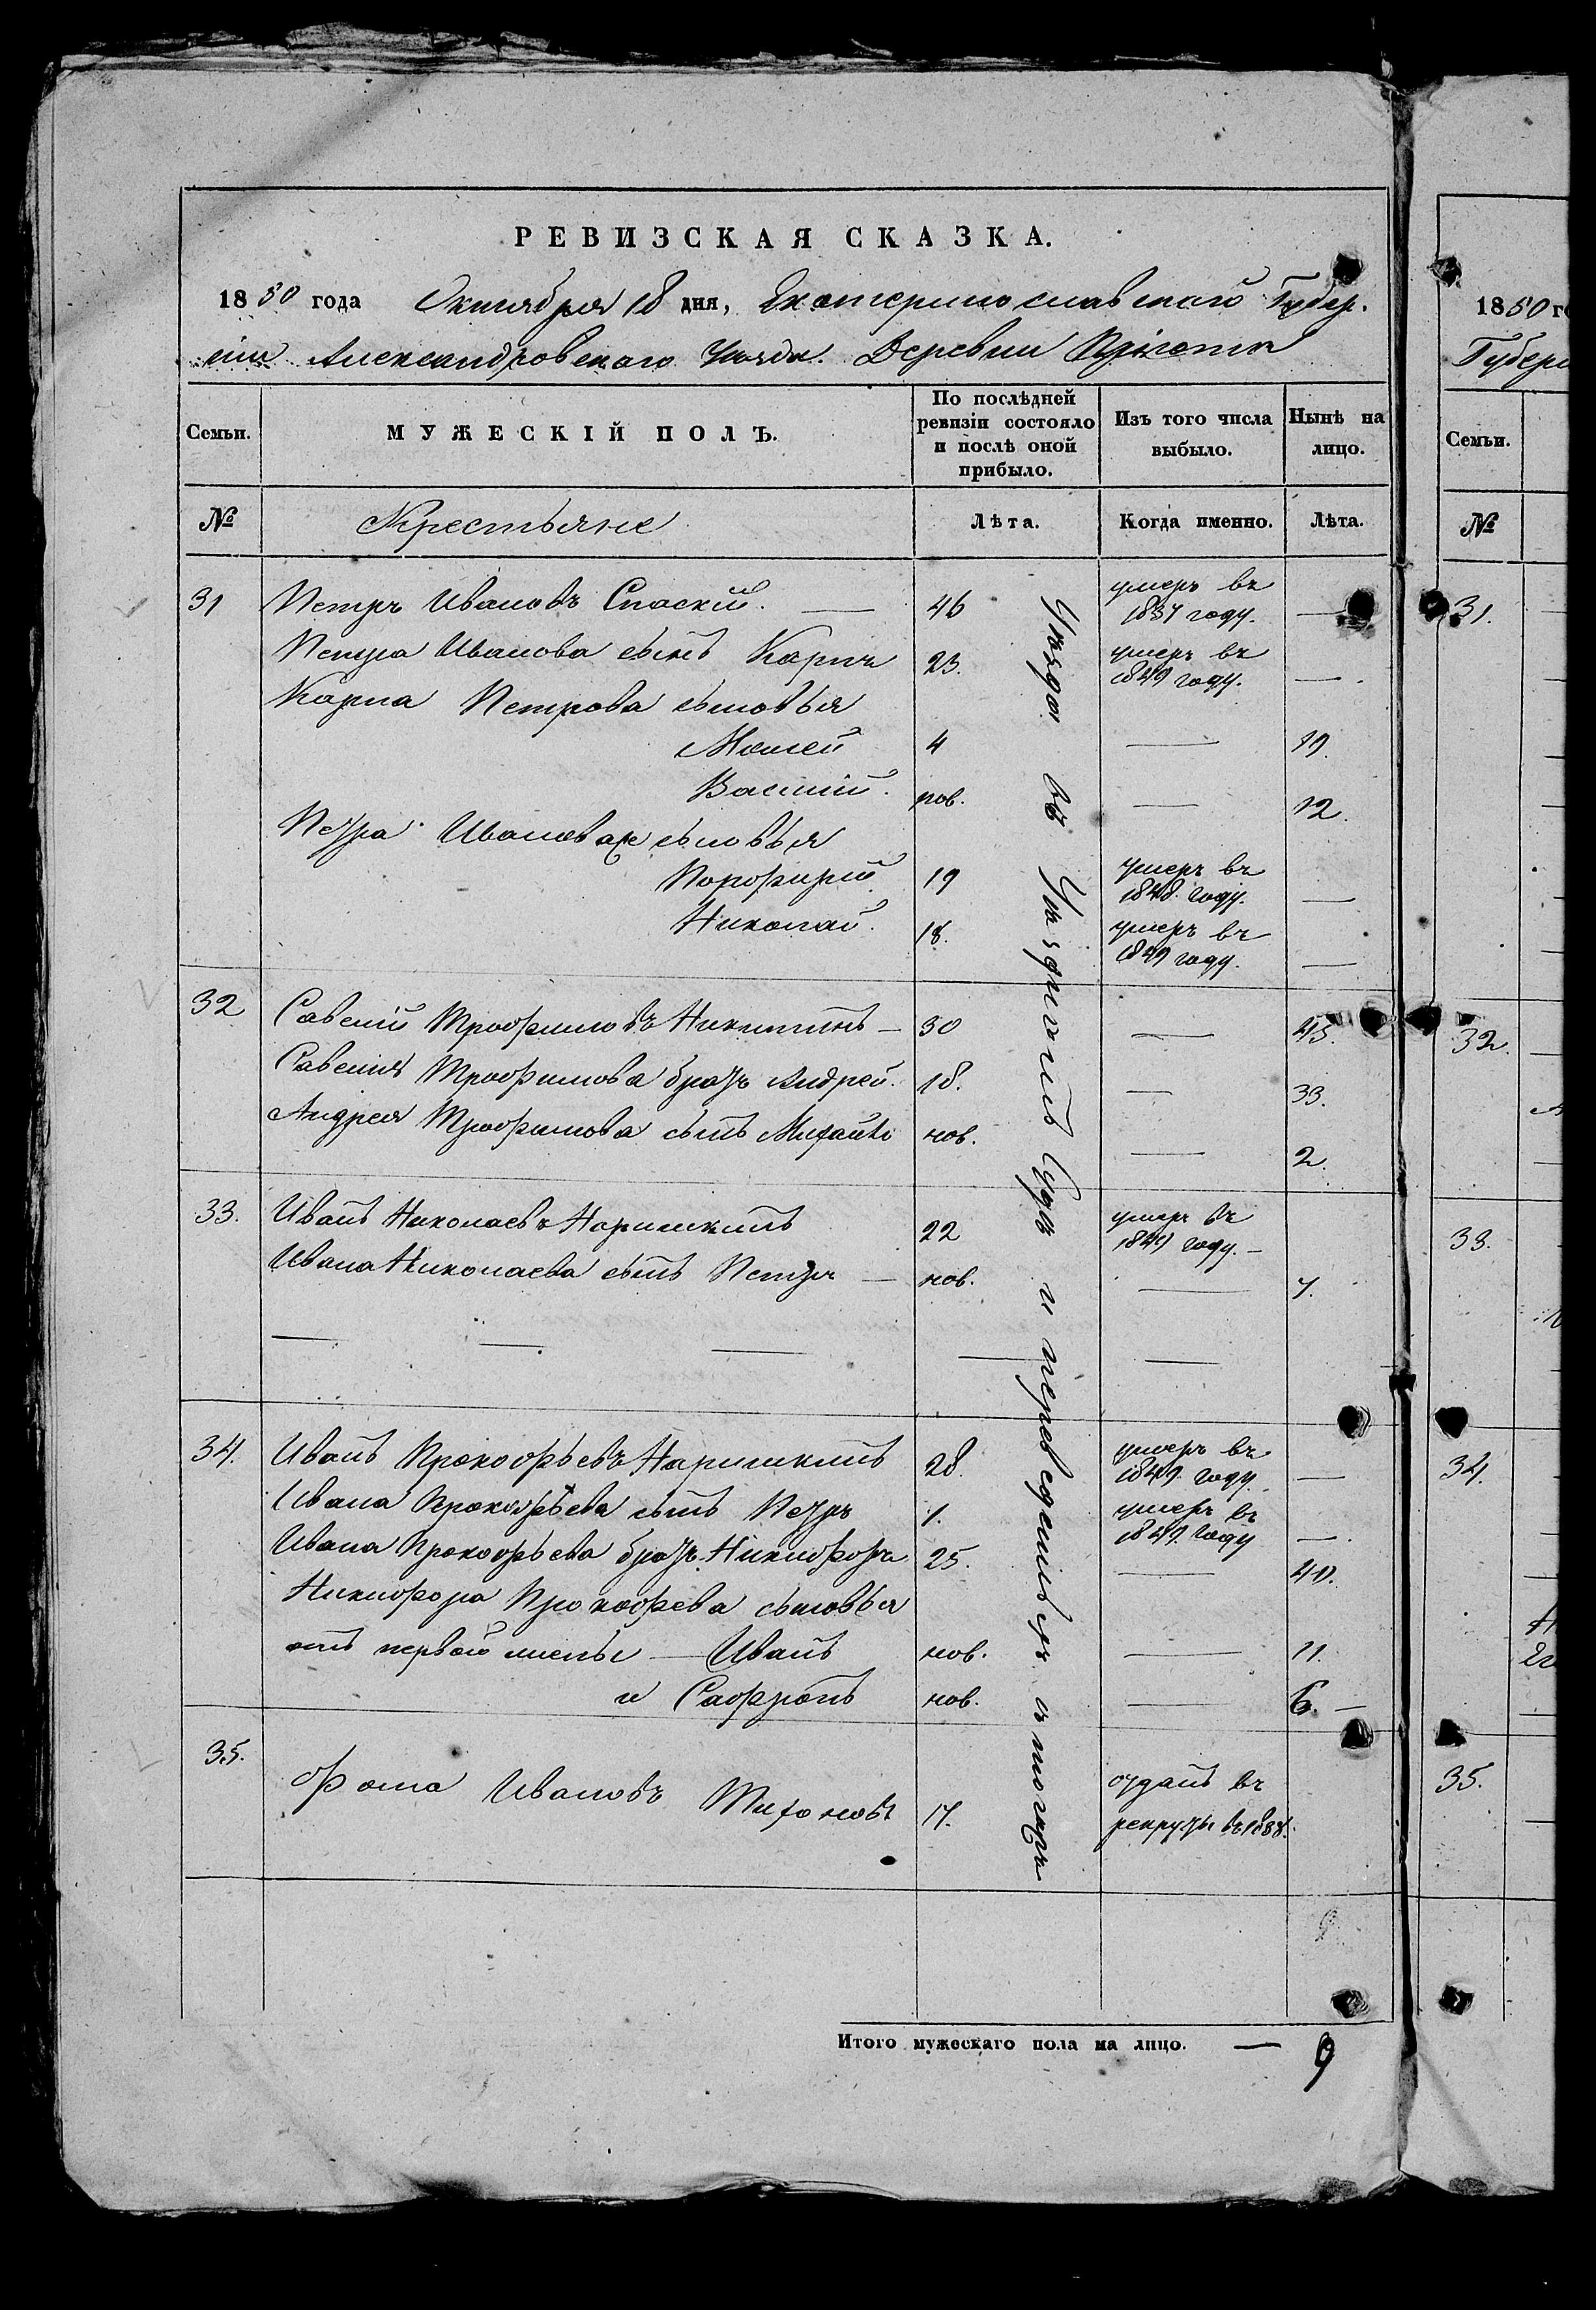 РЕВИЗСКАЯ СКАЗКА.
1850 года Октября 18 дня, Екатеринославской Губер-
нии Александровского Уезда Деревни
Семьи. МУЖЕСКІЙ ПОЛЪ. По послѣдней ревизіи состояло и послѣ оной прибыло. Изъ того числа выбыло. Нынѣ на лицо.
№ Крестьяне Лѣта. Когда именно. Лѣта.
31 Петръ Ивановъ Спаскій. — 46 умеръ въ 1837 году. —
Петра Иванова сынъ Карпъ 23. умеръ въ 1849 году. —
Карпа Петрова сыновья
Моисей 4 — 19.
Василій. нов. — 12.
Петра Иванова же сыновья
Порфирій 19 умеръ въ 1848. году. —
Николай. 18. умеръ въ 1849 году. —
32 Савелій Трофимовъ Никитинъ — 30 — 45.
Савелія Трофимова братъ Андрей. 18. — 33.
Андрея Трофимова сынъ Михайло нов. — 2.
33. Иванъ Николаевъ Наришкинъ 22 умеръ въ 1849 году. —
Ивана Николаева сынъ Петръ — нов. — 7.
— — — — —
34. Иванъ Прокофьевъ Наришкинъ 28. умеръ въ 1849. году. —
Ивана Прокофьева сынъ Петръ 1. умеръ въ 1849. году —
Ивана Прокофьева братъ Никифоръ 25. — 40.
Никифора Прокофева сыновья
отъ первой жены — Иванъ нов. — 11.
и Сафронъ нов. — 6. —
35. Фома Ивановъ Тихоновъ 17. отданъ въ рекруты въ 1838.
въ Уѣздномъ Судѣ и
9
Итого мужескаго пола на лицо. — 9
1850 г
Губерн
Семьи.
№
31.
32.
33.
34.
35.